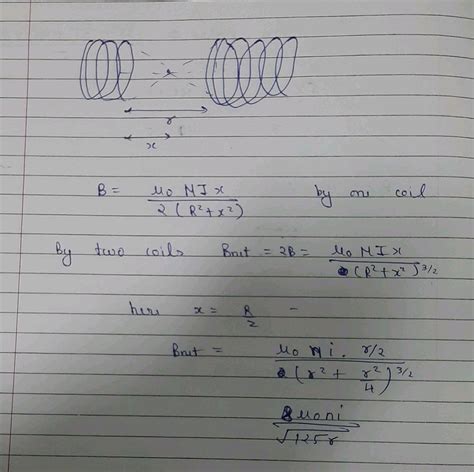 r
x
B = μ₀ N I x / 2 (R² + x²) by one coil
By two coils Bnet = 2B = μ₀ N I x / (R² + x²)^3/2
here x = R/2 -
Bnet = μ₀ n i . r/2 / (r² + r²/4)^3/2
8μ₀ni / √125r